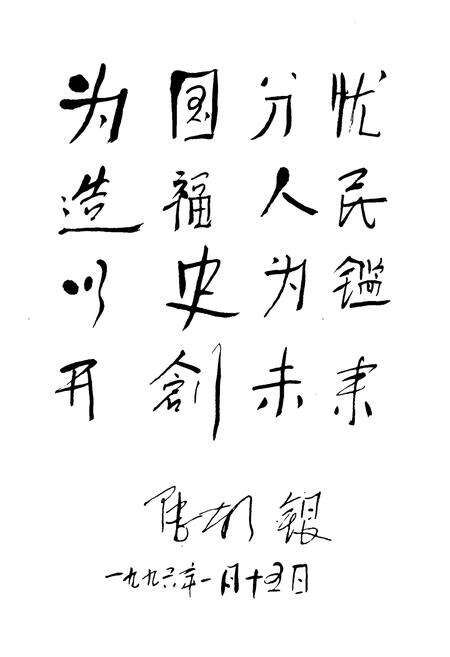 为国分忧
造福人民
以史为鑑
开創未来
银
一九九六年一月十五日